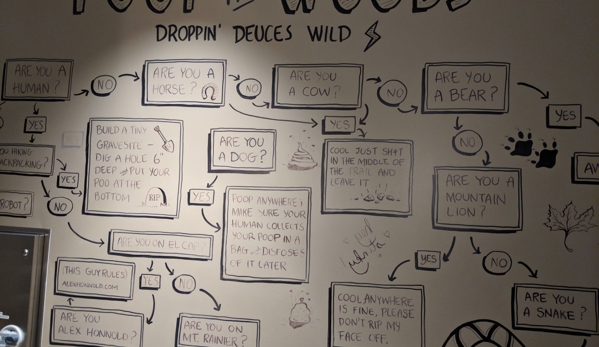 POOP IN THE WOODS
DROPPIN' DEUCES WILD
ARE YOU A
HUMAN?
NO
ARE YOU A
HORSE?
NO
ARE YOU
A COW?
NO
ARE YOU
A BEAR?
YES
YES
YES
NO
BUILD A TINY
GRAVESITE -
DIG A HOLE 6"
DEEP & PUT YOUR
POO AT THE
BOTTOM
RIP
ARE YOU
A DOG?
COOL JUST SH*T
IN THE MIDDLE OF
THE TRAIL AND
LEAVE IT
YOU HIKING
BACKPACKING?
YES
NO
ROBOT?
YES
POOP ANYWHERE &
MAKE SURE YOUR
HUMAN COLLECTS
YOUR POOP IN A
BAG & DISPOSES
OF IT LATER
ARE YOU A
MOUNTAIN
LION?
ARE YOU ON EL CAP?
YES
NO
YES
NO
(THIS GUY RULES)
ALEXHONNOLD.COM
ARE YOU
ALEX HONNOLD?
ARE YOU ON
MT. RAINIER?
COOL ANYWHERE
IS FINE, PLEASE
DON'T RIP MY
FACE OFF.
ARE YOU
A SNAKE?